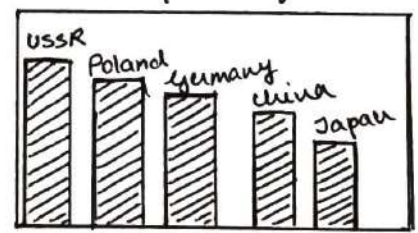 USSR
Poland
Germany
China
Japan